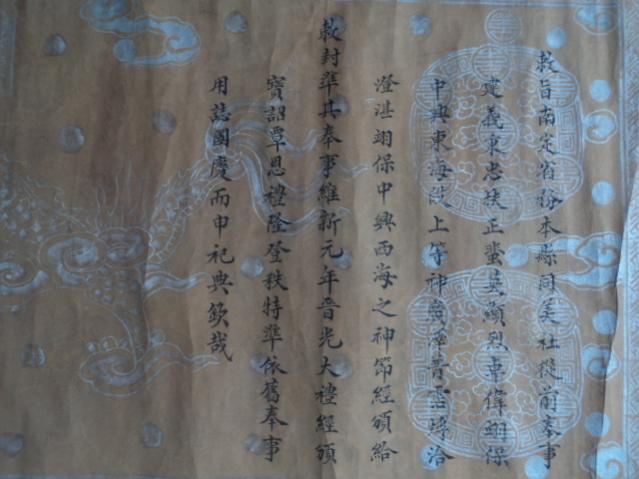 敕旨南定省務本縣同美社從前奉事
建義秉忠扶正蜚英顯烈卓偉翊保
中興東海跛上等神廣澤普霑博洽
澄湛翊保中興西海之神節經頒給
敕封準其奉事維新元年晉光大禮經頒
寶詔覃恩禮隆登秩特準依舊奉事
用誌國慶而申祀典欽哉